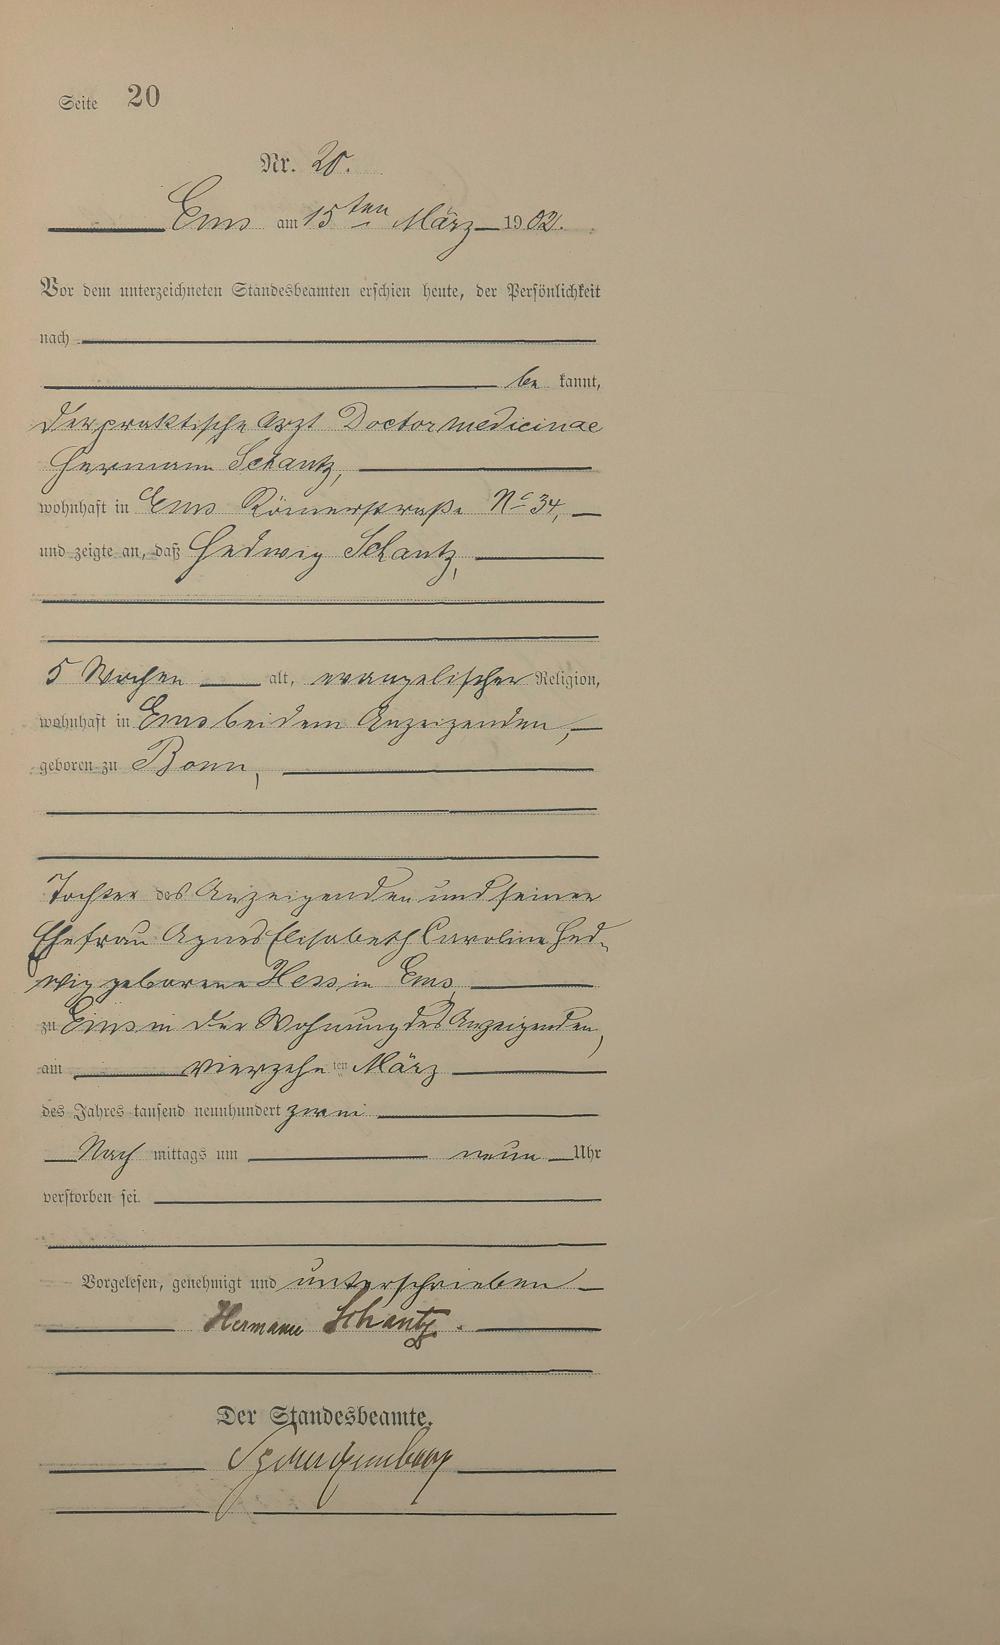 Seite 20
Nr. 20.
Ems am 15ten März 1902.
Vor dem unterzeichneten Standesbeamten erschien heute, der Persönlichkeit
nach
be kannt,
der praktische Arzt Doctor medicinae
Hermann Schantz,
wohnhaft in Ems Römerstraße No 34,
und zeigte an, daß Hedwig Schantz,
5 Wochen alt, evangelischer Religion,
wohnhaft in Ems bei dem Anzeigenden,
geboren zu Bonn,
Tochter des Anzeigenden und seiner
Ehefrau Agnes Elisabeth Caroline Hed-
wig geborene Hess in Ems
zu Ems in der Wohnung des Anzeigenden,
am vierzehnten März
des Jahres tausend neunhundert zwei
Nach mittags um neun Uhr
verstorben sei.
Vorgelesen, genehmigt und unterschrieben
Hermann Schantz.
Der Standesbeamte.